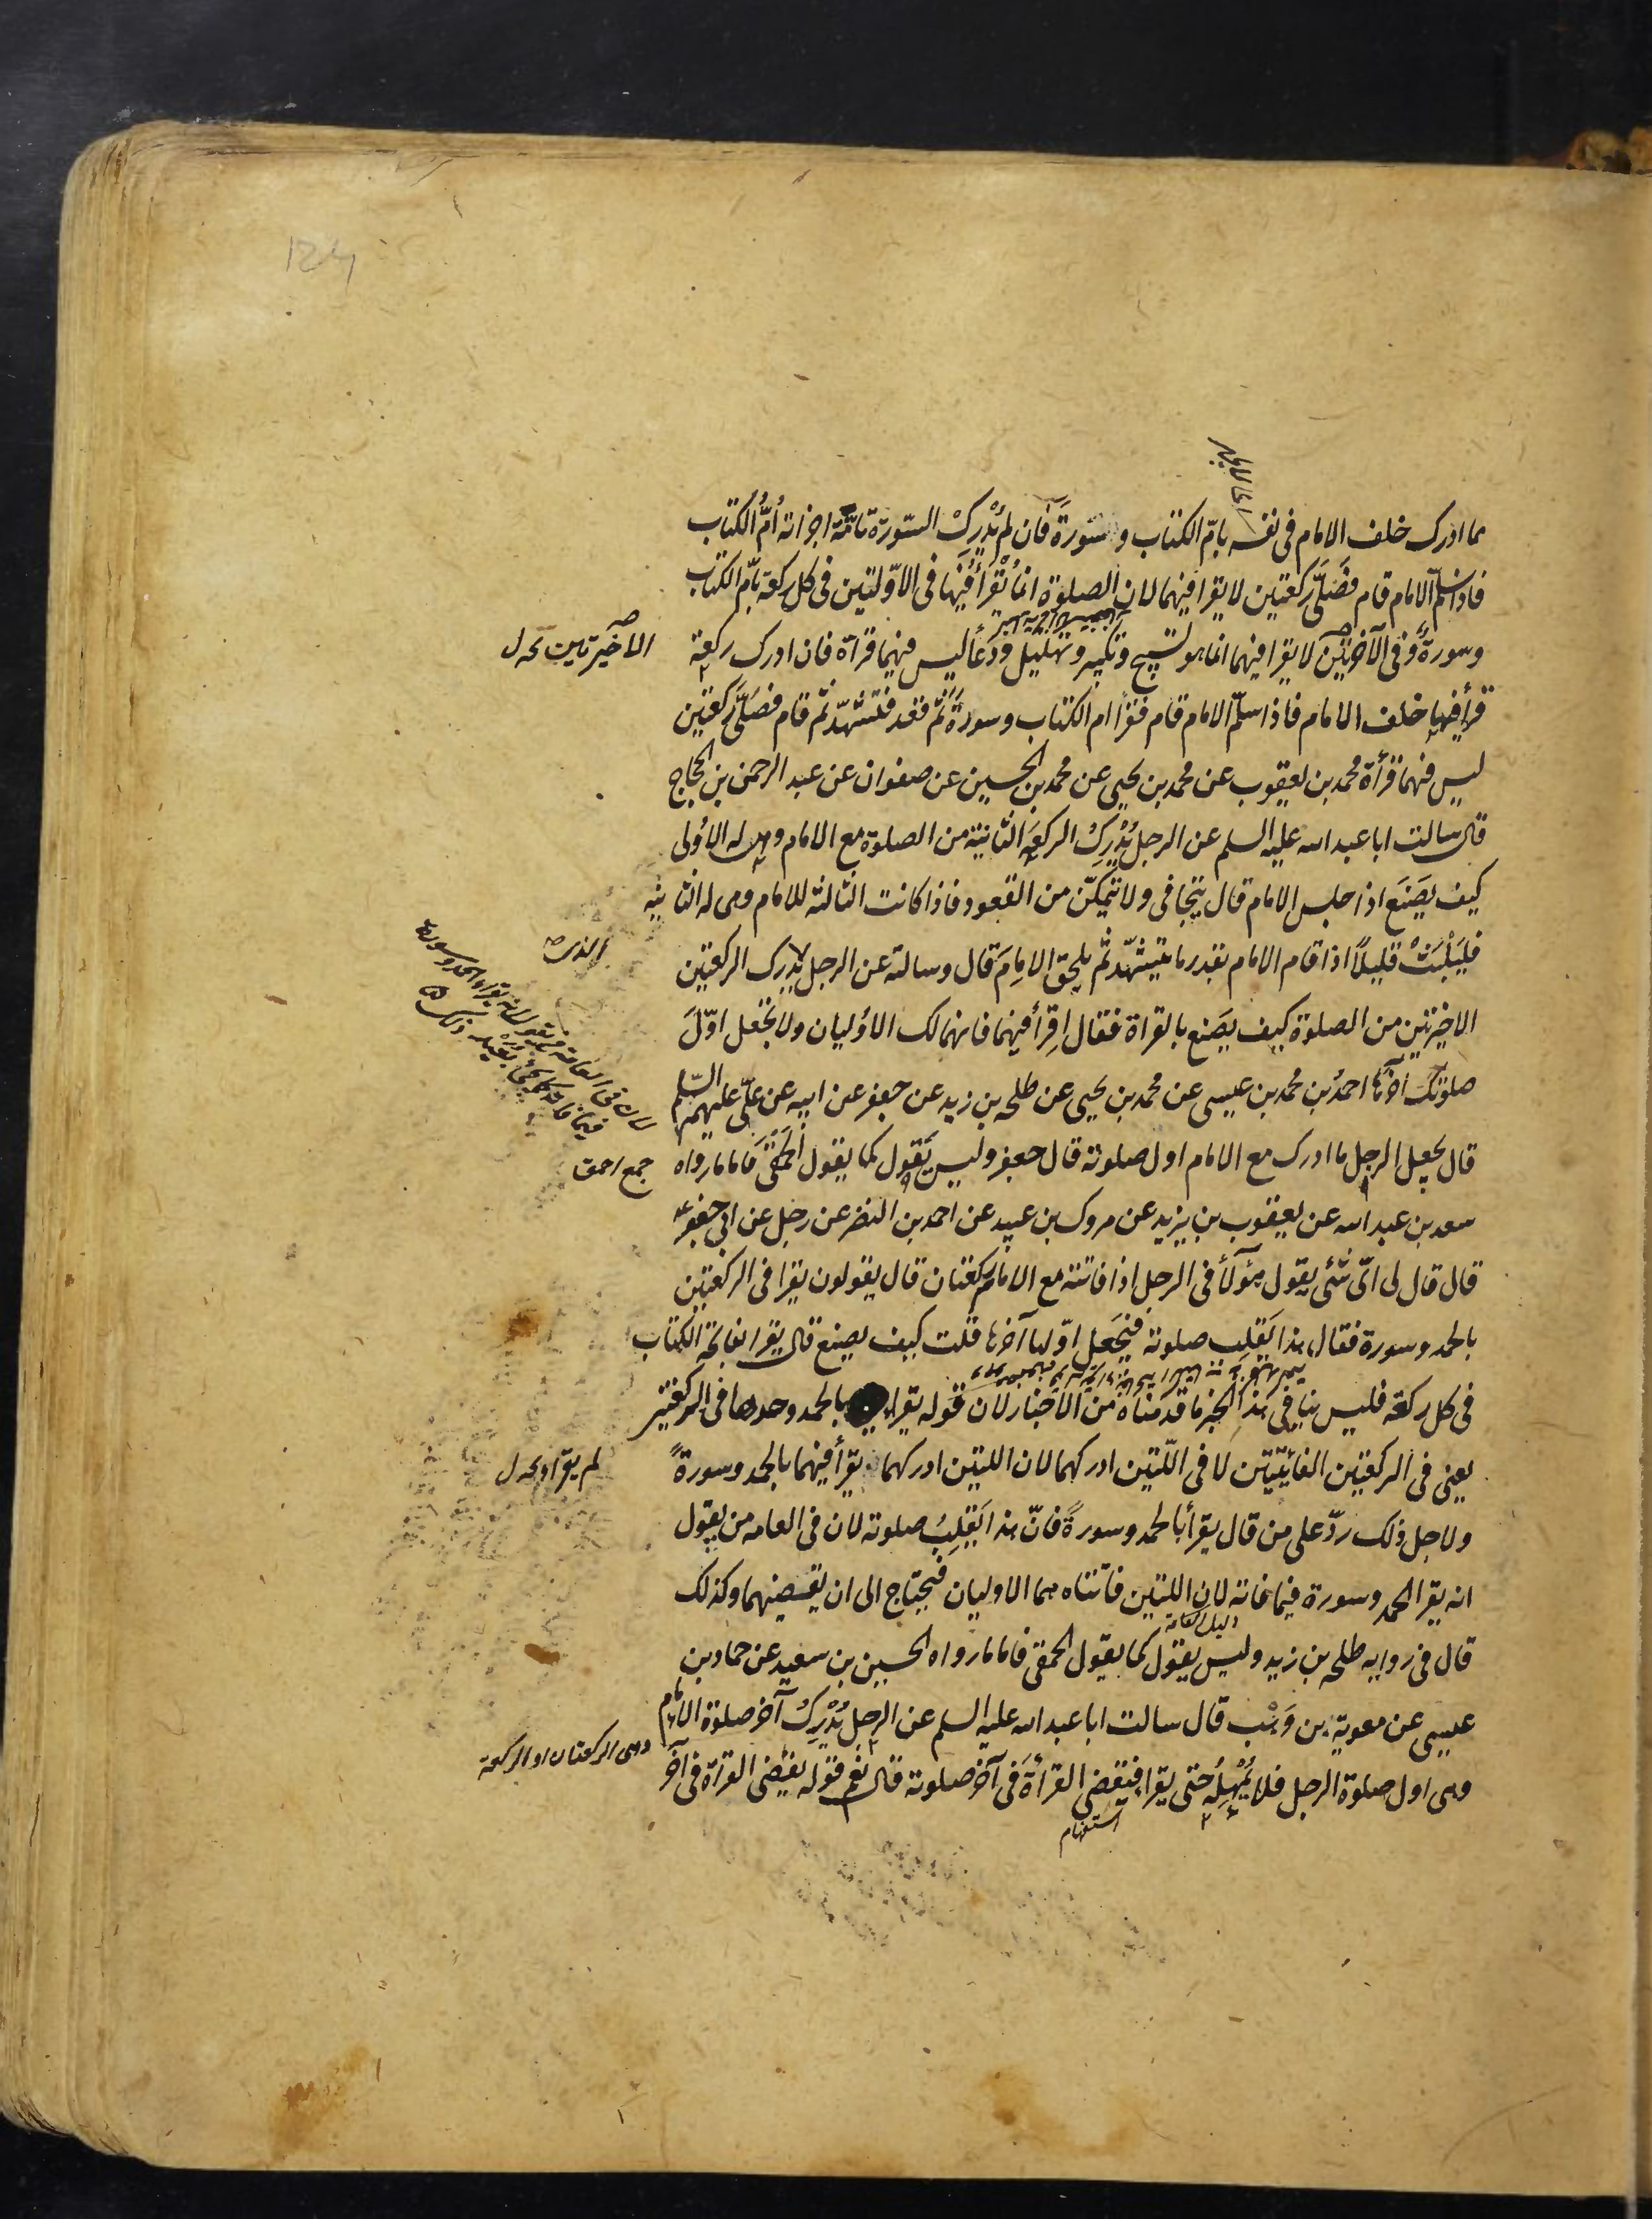 مما ادرك خلف الامام فى نفسه بامّ الكتاب وسورة فان لم يُدرِك السّورة تامّة اجزاته اُمُّ الكتاب
فاذا سلّم الامام قام فصَلَّى ركعتين لا يقرا فيهما لان الصلوة انما يُقرأ فيها فى الاوّلتين فى كل ركعة بامّ الكتاب
وسورة وفى الاخرتين لا يقرا فيهما انما هو تسبيح وتكبير وتهليل ودعا ليس فيهما قراة فان ادرك ركعة
قرأ فيها خلف الامام فاذا سلّم الامام قام فقرأ ام الكتاب وسورة ثم قعد فتشهّد ثم قام فصَلَّى ركعتين
ليس فيهما قرأة محمد بن يعقوب عن محمد بن يحيى عن محمد بن الحسين عن صفوان عن عبد الرحمن بن الحجاج
قال سالت ابا عبد الله عليه السلم عن الرجل يُدْرِكُ الركعة الثانية من الصلوة مع الامام وهى له الاُولى
كيف يصَنَع اذا جلس الامام قال يتجافى ولا يتمكّن من القعود فاذا كانت الثالثة للامام وهى له الثانية
فليَلْبَثْ قليلًا اذا قام الامام بقدر ما يتشهّد ثم يلحق الامام قال وسالته عن الرجل يدرك الركعتين
الاخيرتين من الصلوة كيف يصَنع بالقراة فقال اِقرأ فيهما فانهما لك الاوُليان ولا تجعل اوّلَ
صلوتك آخرها احمدُ بن محمد بن عيسى عن محمد بن يحيى عن طلحه بن زيد عن جعفر عن ابيه عن علىّ عليهم السّلم
قال يجعل الرجل ما ادرك مع الامام اول صلوته قال جعفر وليس يَقول كما يقول الحَمْقَى فاما ما رواه
سعد بن عبد الله عن يعقوب بن يزيد عن مروك بن عبيد عن احمد بن النضر عن رجل عن ابى جعفر ع
قال قال لى اىّ شئى يقول هؤلآء فى الرجل اذا فاتته مع الامام ركعتان قال يقولون يقرا فى الركعتين
بالحمد وسورة فقال هذا يَقلِب صلوته فيجَعل اوّلها آخرها قلت كيف يصنع قال يقرا بفاتحة الكتاب
فى كل ركعة فليس ينافى هذا الخبر ما قدمناه من الاخبار لان قوله يقرا بالحمد وحدها فى الركعتين
يعنى فى الركعتين الفائتتين لا فى اللّتين ادركهما لان اللتين ادركهما يقرأ فيهما بالحمد وسورةً
ولاجل ذلك ردّ على من قال يقرأ بالحمد وسورةً فانّ هذا يَقلِبُ صلوته لان فى العامه من يقول
انه يقرا الحمد وسورة فيما فاته لان اللتين فاتتاه هما الاوليان فيحتاج الى ان يقضيهما وكذلك
قال فى روايه طلحه بن زيد وليس يقول كما يقول الحمقى فاما ما رواه الحسين بن سعيد عن حماد بن
عيسى عن معوية بن وَهْب قال سالت ابا عبد الله عليه السلم عن الرجل يُدْرِكُ آخر صلوة الامام
وهى اول صلوة الرجل فلا يُمْهِلُه حتى يقرا فيقضى القرأة فى آخر صلوته قال نعم فقوله يقضى القرأة فى آخر
استفهام
الاخيرتين بحه ل
جمع احمق
لم يقرا بحه ل
وهى الركعتان او الركعة